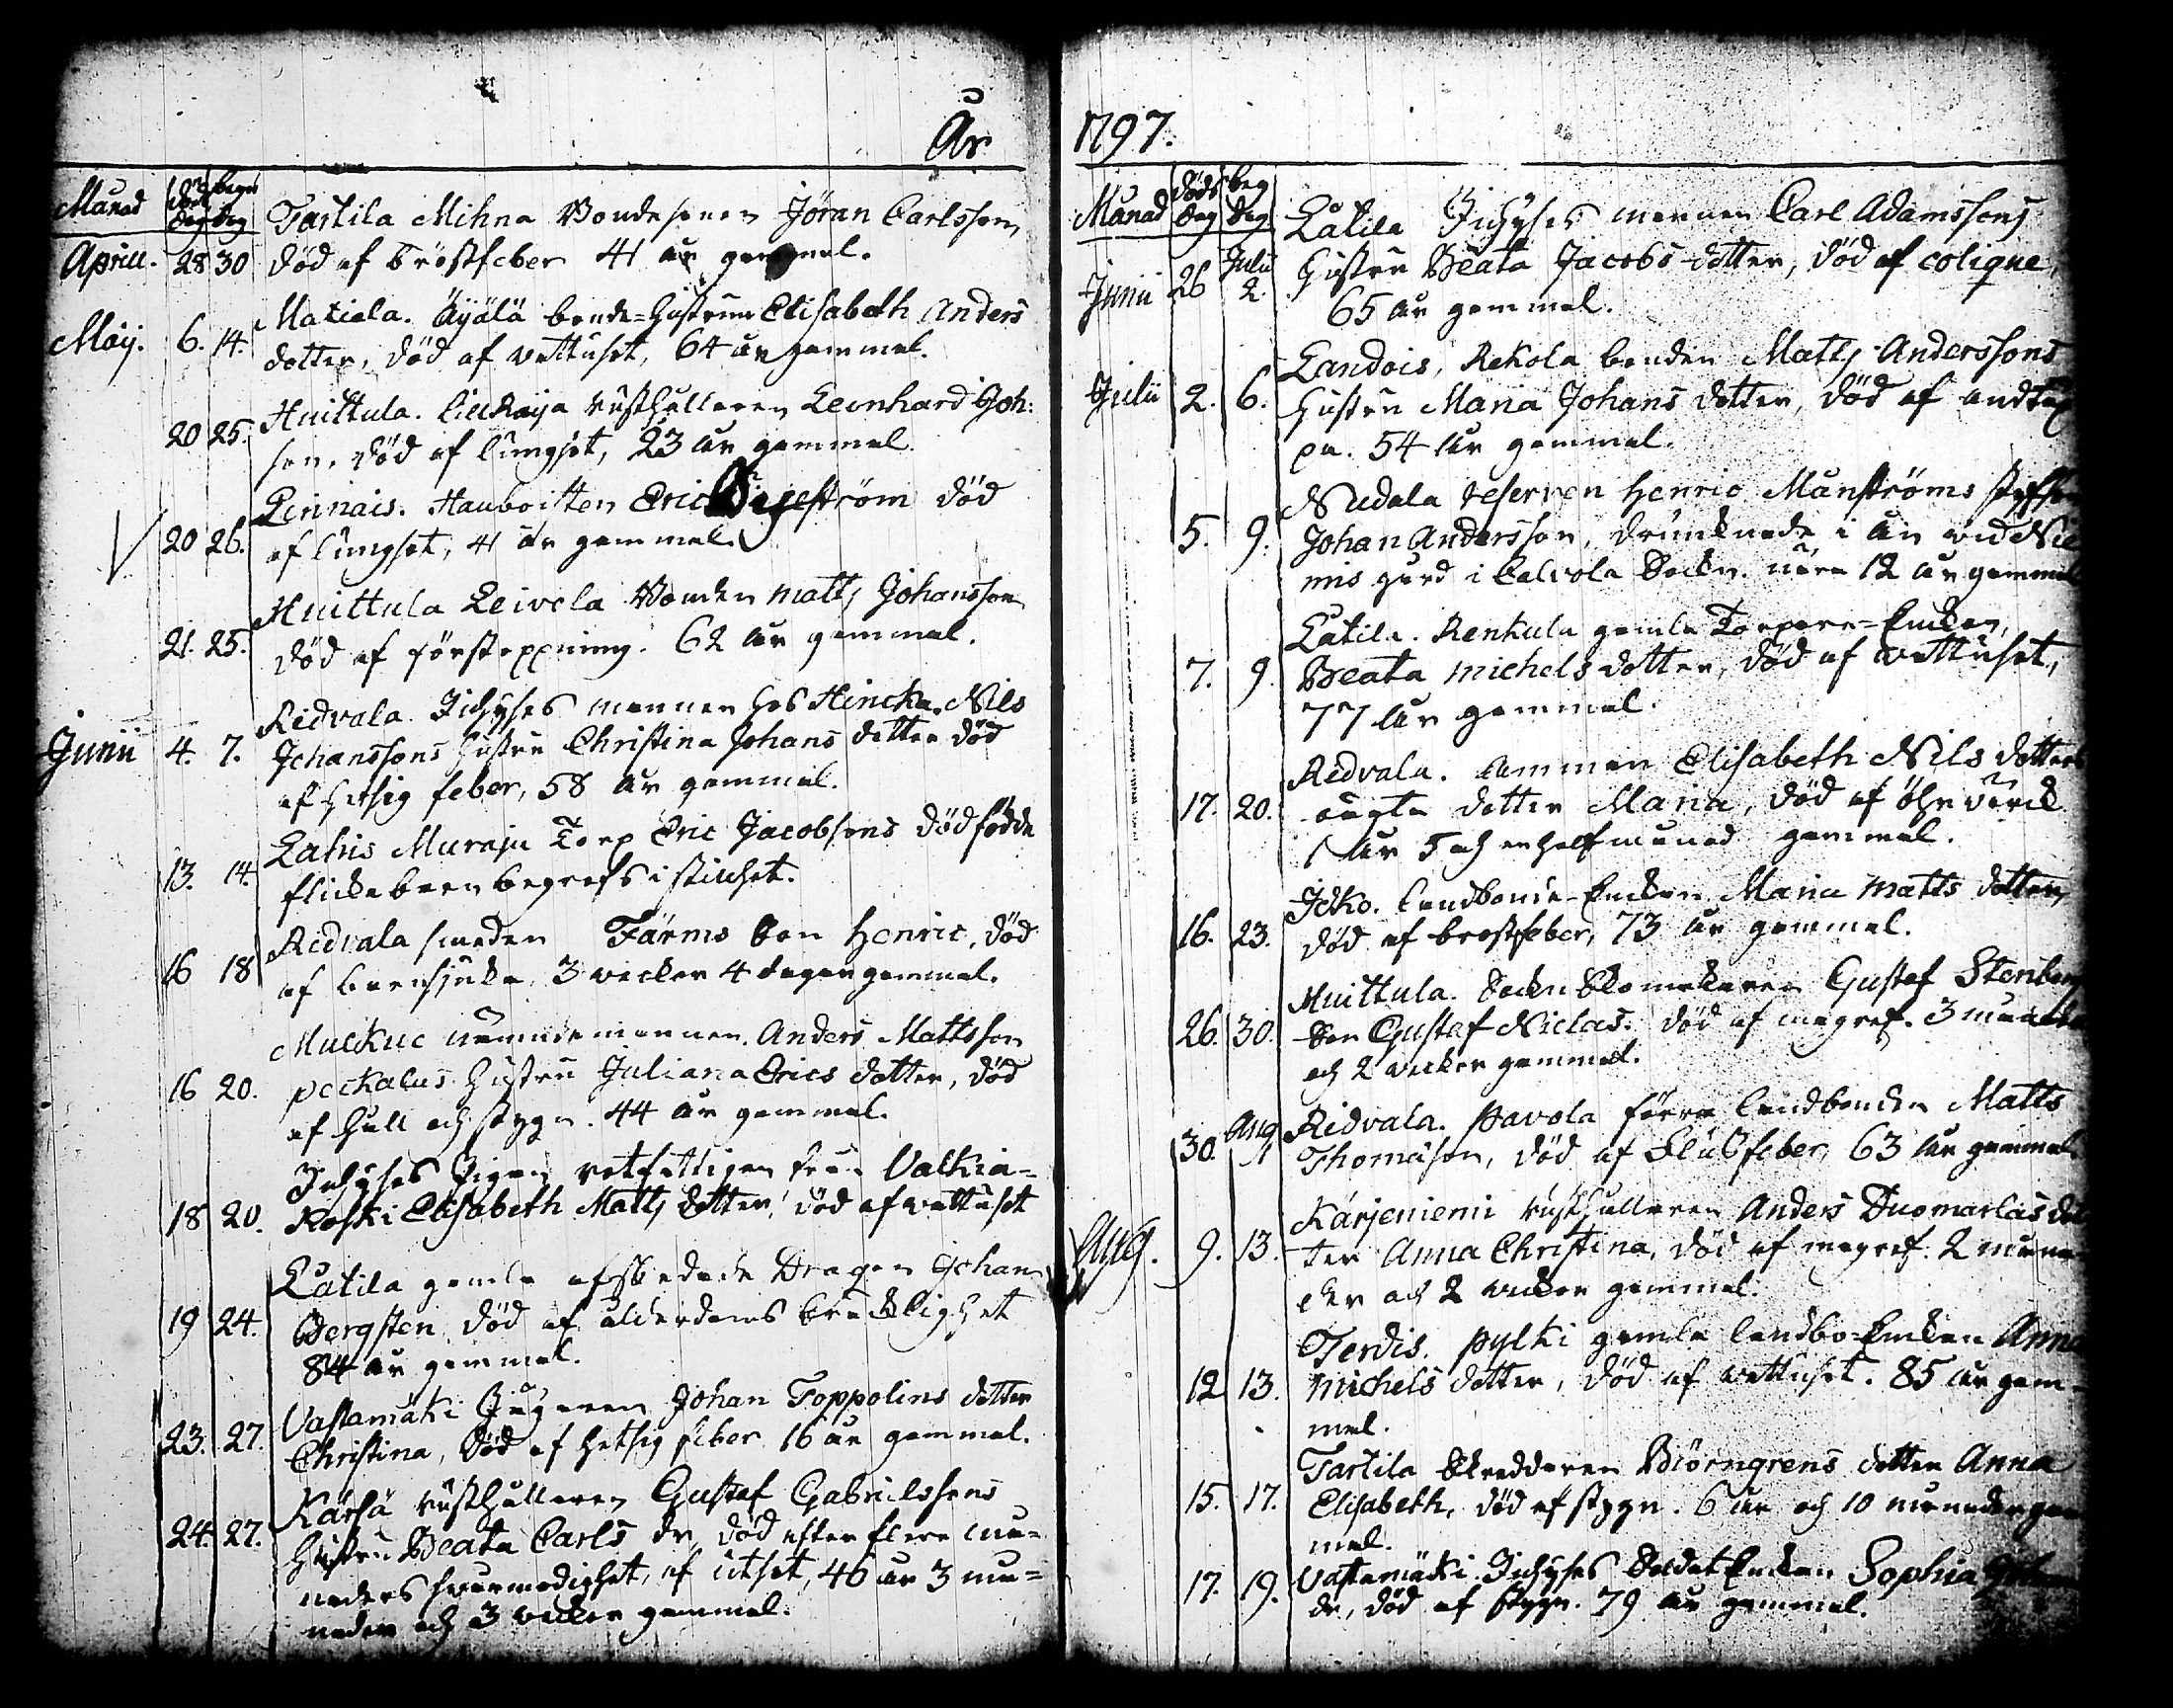 År
Månad död dag begr dag
Tarttila Mihna Bondesonen Jöran Carlsson,
Aprill. 28 30 död af bröstfeber 41 år gammal.
Matiela. Äyälä bonde=hustrun Elisabeth Anders
Maij. 6. 14. dotter, död af vattusot, 64 år gammal.
Huittula. rusthållaren Leonhard Joh:
20 25. son, död af lungsot, 23 år gammal.
Leinnais. Hauboisten Eric Segeström död
20 26. af lungsot, 41 år gammal.
Huittula Leivola Bonden Matts Johansson
21. 25. död af förstoppning. 62 år gammal.
Ridvala Inhyses mannen hos Hincka. Nils
Junii 4. 7. Johanssons hustru Christina Johans dotter död
af hetsig feber, 58 år gammal.
Lahis Muraju Torp Eric Jacobsons dödfödda
13. 14. flickebarn begrofs i stillhet.
Ridvala smeden Färms Son Henric, död
16 18 af barnsjuka, 3 veckor 4 dagar gammal.
Muckuc nämndemannen Anders Mattsson
16 20. Peckalas hustru Juliana Erics dotter, död
af håll och stygn. 44 år gammal.
Inhyses Pigan rotfattigen från Valkia=
18 20. koski Elisabeth Matts dotter, död af vattusot
Låtila gamla afskedade Dragon Johan
19 24. Bergsten död af ålderdoms bräcklighet
84 år gammal.
Vastamäki Jugaren Johan Toppolins dotter
23. 27. Christina, död af hetsig feber 16 år gammal.
Kärsä rusthållaren Gustaf Gabrielssons
24. 27. hustru Beata Carls dr, död efter flere må=
naders svårmodighet, af utsot, 46 år 3 må=
nader och 3 veckor gammal.
1797.
Månad Döds dag beg dag
Låtila Inhyses mannen Carl Adamssons
Junii 26 Julii 2. hustru Beata Jacobs dotter, död af colique,
65 år gammal.
Landois, Rekola bonden Matts Anderssons
Julii 2. 6. hustru Maria Johans dotter, död af andtäp
pa. 54 år gammal.
Nudala reserven Henric Månströms styfson
5. 9. Johan Andersson, drunknade i ån vid Nie
mis gård i Calvola Sockn. 12 år gammal
Låtila. Renkula gamla Torpare=Enckan,
7. 9. Beata Michels dotter, död af vattusot,
77 år gammal.
Ridvala. Amman Elisabeth Nils dotters
17. 20. oägta dotter Maria, död af öhrvärck
1 år 5 och en half månad gammal.
Idko. Landbonde-Enckan Maria Matts dotter,
16. 23. död af bröstfeber, 73 år gammal.
Huittula. Sockn Skomakaren Gustaf Stenberg
26. 30. Son Gustaf Niclas. död af magref. 3 månader
och 2 veckor gammal.
Ridvala. Pavola förra landbonden Matts
30. Aug 1 Thomason, död af Flussfeber, 63 år gammal
Kärjeniemi rusthållaren Anders Duomarlas dot
Aug. 9. 13. ter Anna Christina, död af magref. 2 måna
der och 2 veckor gammal.
Terdis. Pylki gamla landbo-Enckan Anna
12 13. Michels dotter, död af vattusot. 85 år gam-
mal.
Tarttila Skreddaren Björngrens dotter Anna
15. 17. Elisabeth, död af stygn. 6 år och 10 månader gam
mal.
17. 19. Vastamäki. Inhyses Soldat Enckan Sophia
dr, död af stygn. 79 år gammal.